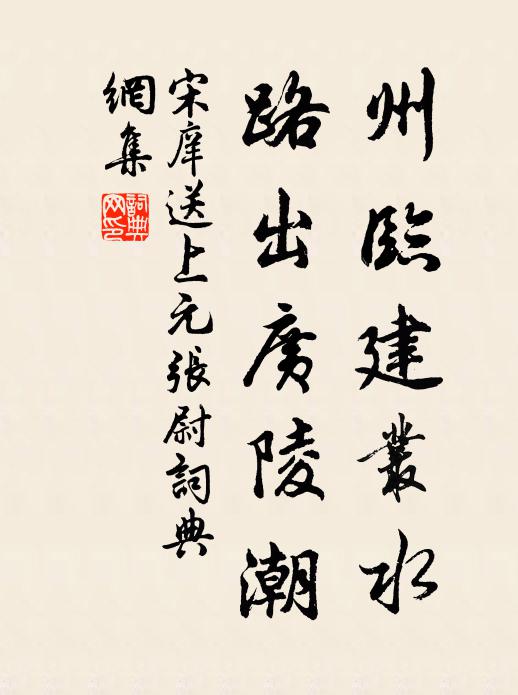 州臨建叢水
路出廣陵潮
宋庠送上元張尉詞典
網集
詞典
网印